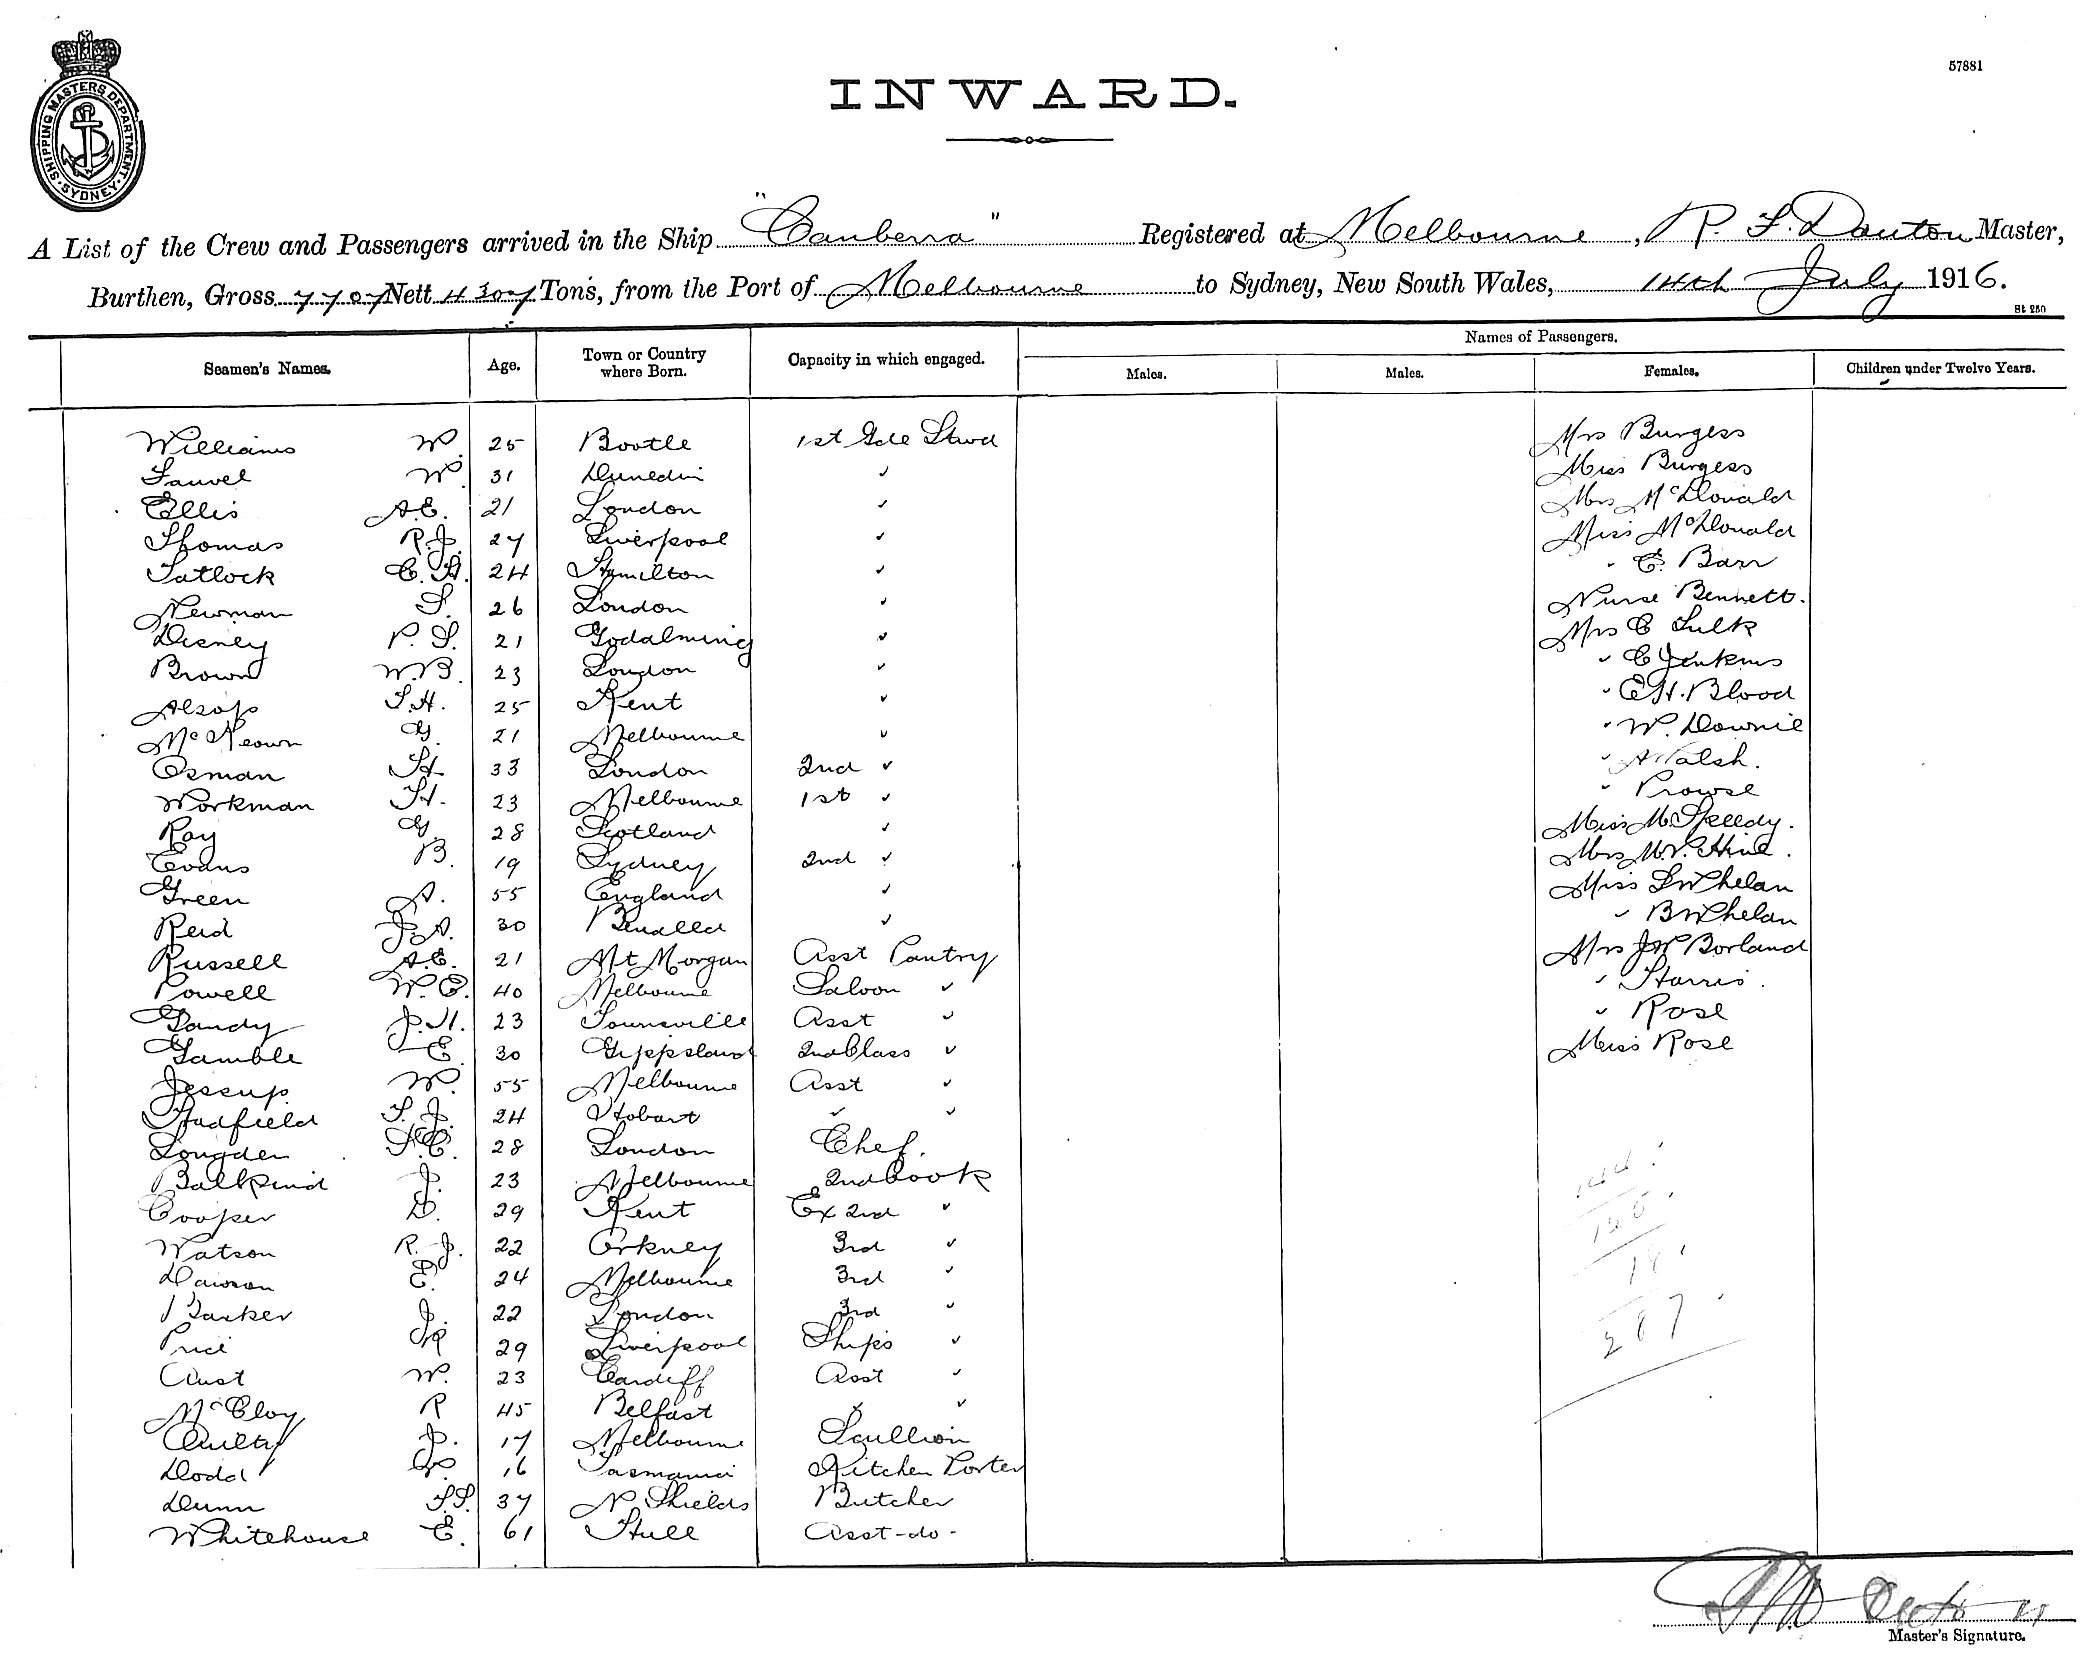 57881
SHIPPING MASTERS DEPARTMENT · SYDNEY ·
INWARD.
A List of the Crew and Passengers arrived in the Ship "Canberra" Registered at Melbourne, R. F. Dauton Master,
Burthen, Gross 7707 Nett 4307 Tons, from the Port of Melbourne to Sydney, New South Wales, 14th July 1916.
St 250
Seamen's Names. Age. Town or Country where Born. Capacity in which engaged. Names of Passengers.
Males. Males. Females. Children under Twelve Years.
Williams W. 25 Bootle 1st Gde Stwd Mrs Burgess
Fauvel W. 31 Dunedin " Miss Burgess
Ellis A.E. 21 London " Mrs McDonald
Thomas R.J. 27 Liverpool " Miss McDonald
Tatlock C.H. 24 Hamilton " " E. Barr
Newman S. 26 London " Nurse Bennett.
Disney P.S. 21 Godalming " Mrs C Lulk
Brown W.B. 23 London " " C Jenkins
Alsop S.H. 25 Kent " " E.H. Blood
McKeown G. 21 Melbourne " " W. Downie
Osman H. 33 London 2nd " " A Walsh.
Workman H. 23 Melbourne 1st " " Prowse
Roy G. 28 Scotland " Miss M. Speedy.
Evans B. 19 Sydney 2nd " Mrs M.V. Hine.
Green A. 55 England " Miss L Whelan
Reid J.A. 30 Benalla " " B Whelan
Russell A.E. 21 Mt Morgan Asst Pantry Mrs J W Borland
Powell W.E. 40 Melbourne Saloon " " Harris.
Gandy J.H. 23 Townsville Asst " " Rose
Gamble E. 30 Gippsland 2nd Class " Miss Rose
Jessup W. 55 Melbourne Asst "
Hadfield S.J. 24 Hobart " "
Longden F.C. 28 London Chef.
Balkind J. 23 Melbourne 2nd Cook
Cooper D. 29 Kent Ex 2nd "
Watson R.J. 22 Orkney 3rd "
Dawson E. 24 Melbourne 3rd "
Barker J. 22 London 3rd "
Price 29 Liverpool Ships "
Aust W. 23 Cardiff Asst "
McCloy R 45 Belfast " "
Quilty J. 17 Melbourne Scullion
Dodd 16 Tasmania Kitchen Porter
Dunn S.S. 37 N. Shields Butcher
Whitehouse E. 61 Hull Asst -do-
144
125
18
287
Master's Signature.